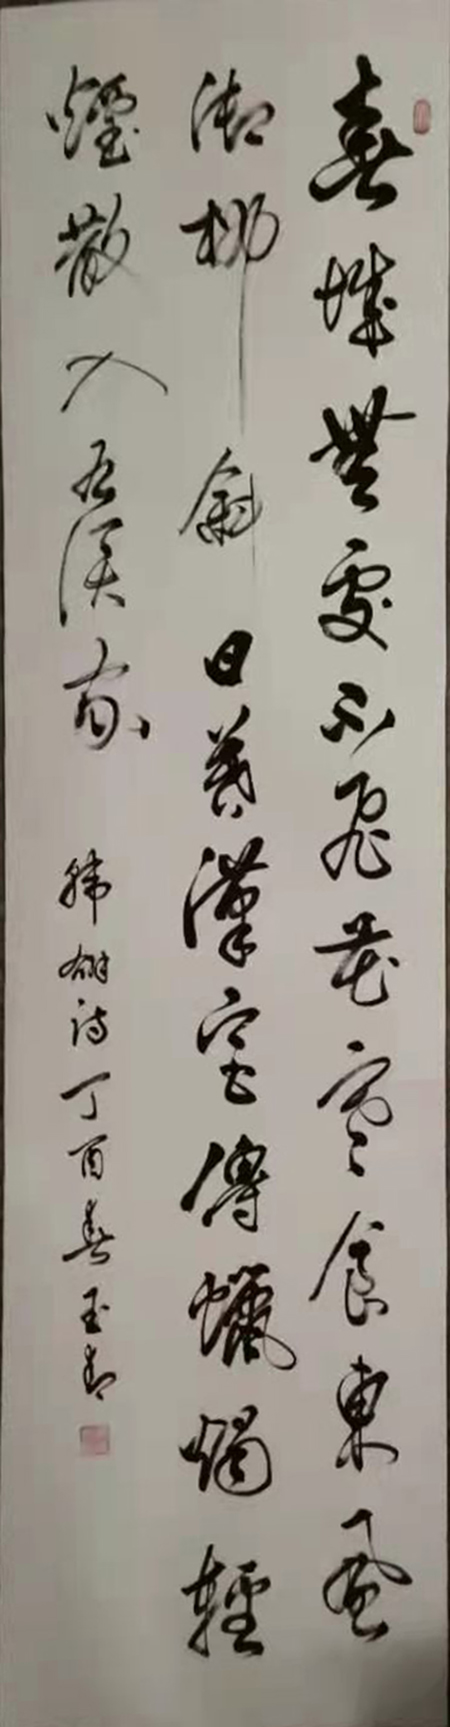 春城無處不飛花寒食東風
御柳斜日暮漢宮傳蠟燭輕
煙散入五侯家 韓翃詩丁酉春玉